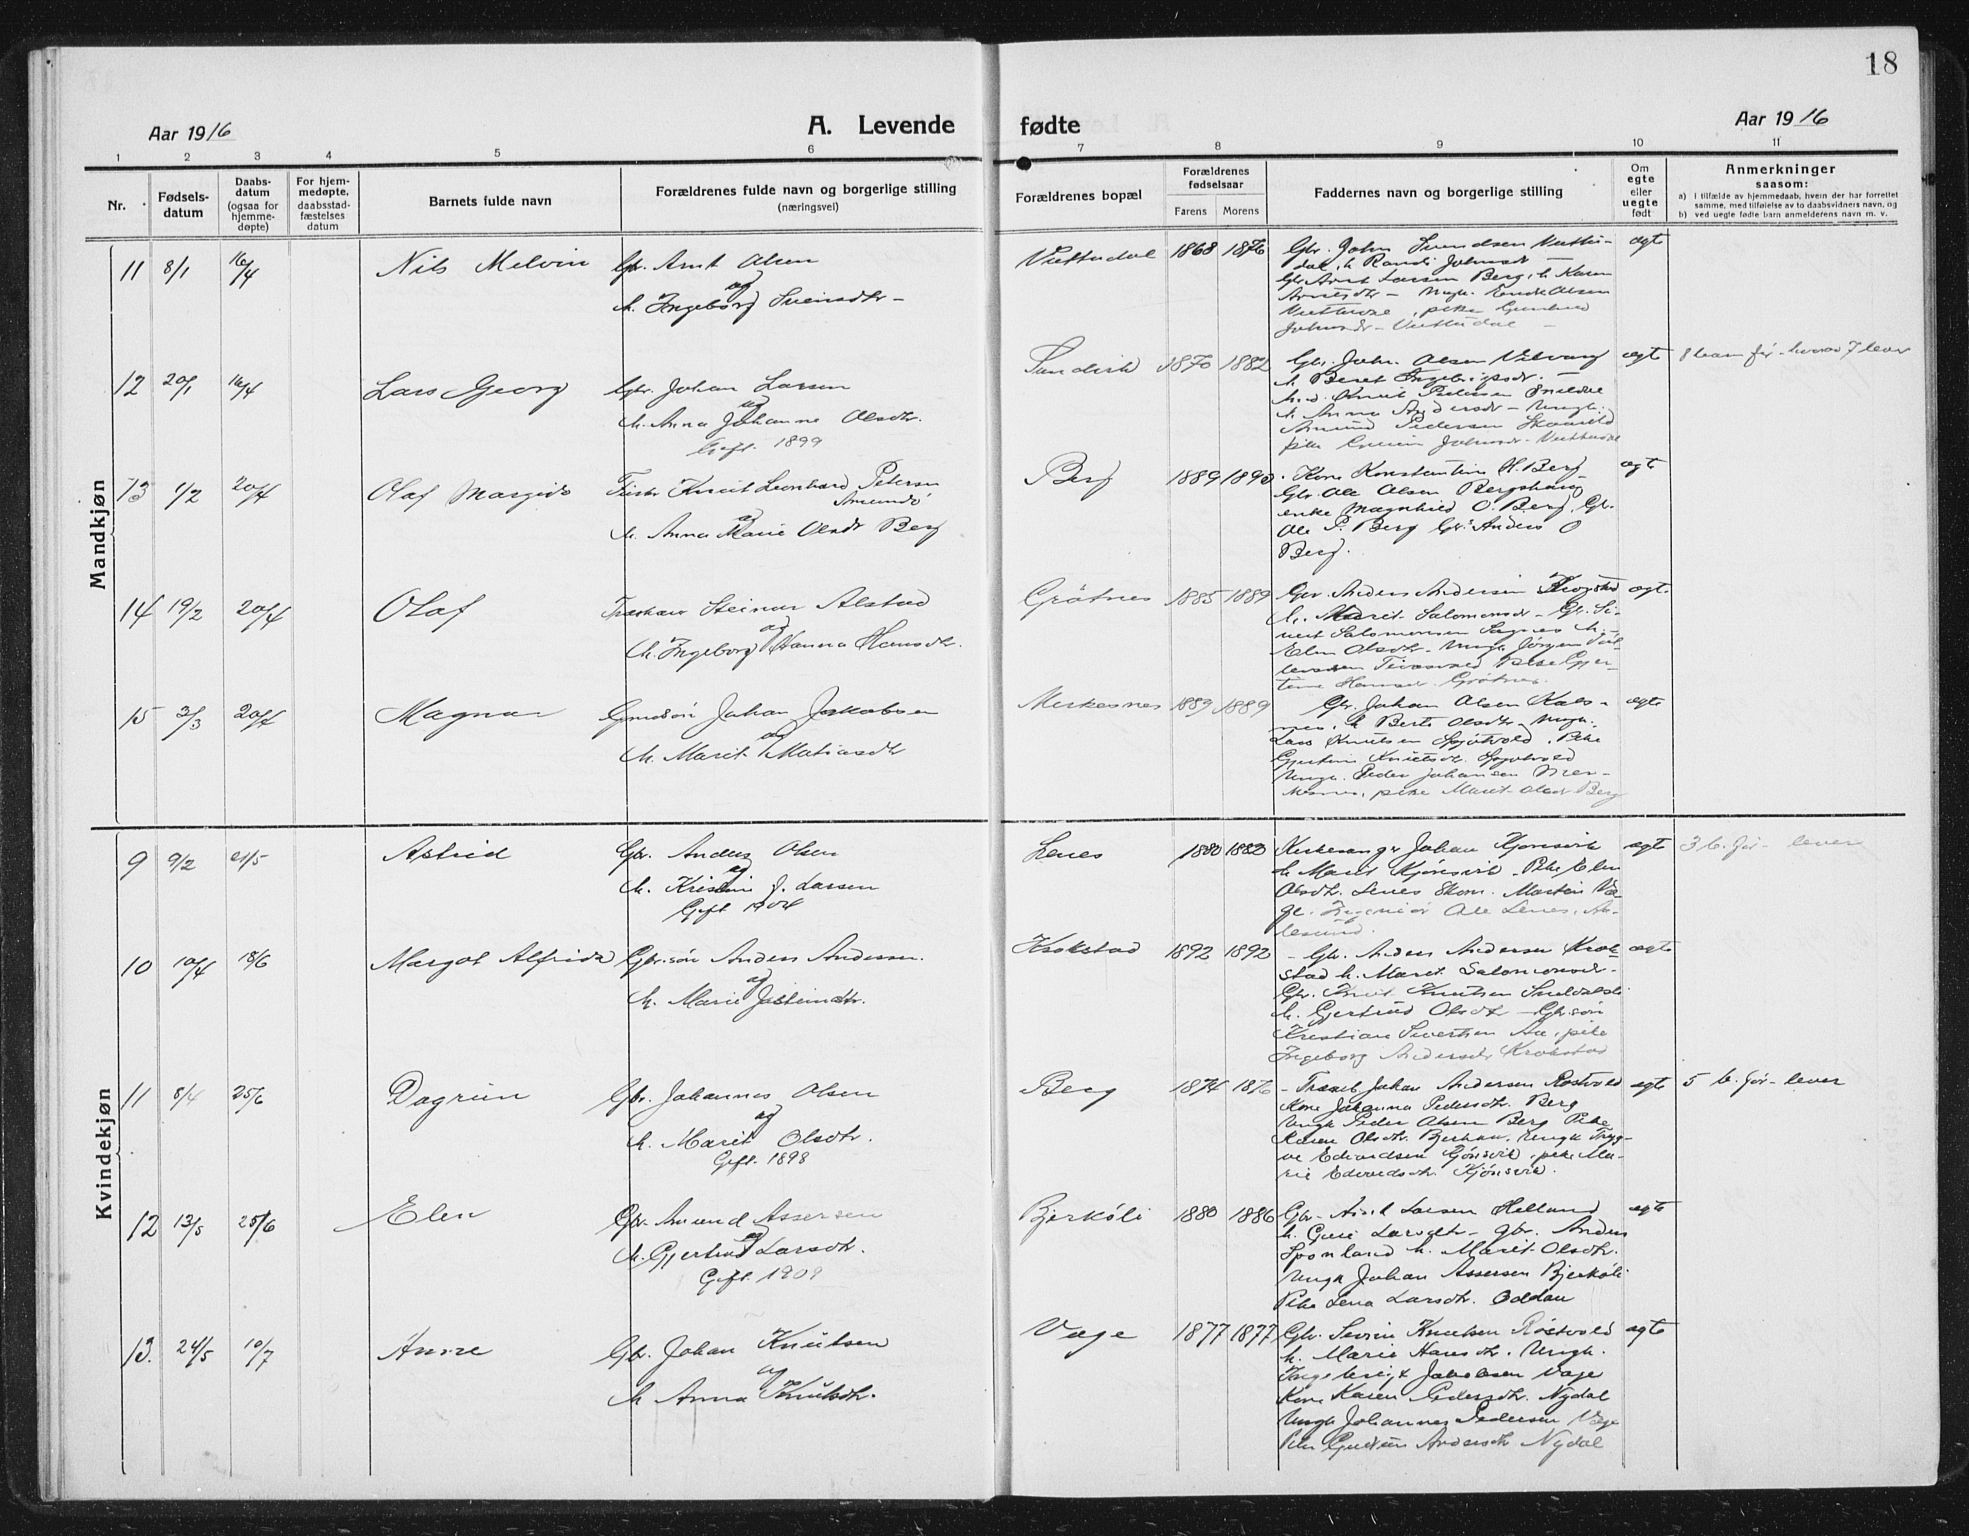 18
Aar 1916
A. Levende fødte
Aar 1916
1 2 3 4 5 6 7 8 9 10 11
Nr.
Fødsels-
datum
Daabs-
datum
(ogsaa for
hjemme-
døpte)
For hjem-
medøpte,
daabsstad-
fæstelses
datum
Barnets fulde navn
Forældrenes fulde navn og borgerlige stilling
(næringsvei)
Forældrenes bopæl
Forældrenes
fødselsaar
Farens Morens
Faddernes navn og borgerlige stilling
Om
egte
eller
uegte
født
Anmerkninger
saasom:
a) i tilfælde av hjemmedaab, hvem der har forrettet
samme, med tilføielse av to daabsvidners navn, og
b) ved uegte fødte barn anmelderens navn m. v.
Mandkjøn
11 8/1 16/4 Nils Melvin Gbr. Arnt Olsen
og
h. Ingeborg Svensdtr
1868 1876
Gbr. John Svendsen
h. Randi Johnsdr
Gbr. Arnt Larsen Berg, h. Karen
egte
12 20/1 16/4 Lars Georg Gbr. Johan Larsen
og
h. Anna Johanne Olsdtr.
Gift. 1899
1870 1882
Gbr. John Olsen
h. Beret
h. Anna Andersdr
Amund Pedersen
egte 8 barn før - hvorav 7 lever
13 1/2 20/4 Olaf Knut Leonhard Petersen
og
h. Anna Marie Olsdr Berg
Berg 1889 1890
Kone Konstantine H. Berg
Gbr. Ole Olsen Bergshaug
enke Magnhild O. Berg, Gbr.
Ole P. Berg Gbr. Anders O
Berg.
egte
14 19/2 20/4 Olaf Steinar Alstad
og
h. Ingeborg Hanna Hansdtr.
Grötnes 1885 1889
Gbr. Anders Andersen Krogstad
h. Marit Salomonsdr - Gbr. Si-
vert Salomonsen Sagnes h.
Elen Olsdtr. Ungk. Jörgen
egte
15 3/3 20/4 Magnar Gmdsön Johan Jakobsen
og
h. Marit Matiasdtr
Merkesnes 1889 1889
Gbr. Johan Olsen Kals-
nes, h. Berte Olsdtr. Ungk.
Lars Knutsen Spjötvold, Pike
Gjertine Knutsdtr. Spjötvold
Ungk. Peder Johansen Mer-
kesnes, pike Marit Olsdr Berg
egte
Kvindekjøn
9 9/2 21/5 Astrid Gbr. Anders Olsen
og
h. Kristine J. Larsen
Gift 1904
Lenes 1880 1880
Kirkesanger Johan Kjönsvik
h. Marit Kjönsvik. Pike Elen
Olsdtr. Lenes Skom. Martin Væ-
ge. Ingeniör Ole Lenes, Aa-
lesund.
egte 3 b. før - lever
10 10/4 18/6 Margot Alfrida Gbr.sön Anders Andersen.
og
h. Marie Josteinsdtr.
Krokstad 1892 1892
Gbr. Anders Andersen Krok-
stad h. Marit Salomonsdr -
Gbr. Knut Knutsen Sneldalsli
h. Gjertrud Olsdtr - Gbr.sön
Kristian Sivertsen Aa, pike
Ingeborg Andersdtr Krokstad
egte
11 8/4 25/6 Dagrun Gbr. Johannes Olsen
og
h. Marit Olsdtr.
Gift. 1898
Berg 1874 1876
Johan Andersen Rostvold
Kone Johanna Pedersdtr. Berg
Ungk Peder Olsen Berg Pike
Karen Olsdtr. Berghau. Ungk Tryg-
ve Edvardsen Gjönsvik, pike Ma-
rie Edvardsdtr Kjönsvik.
egte 5 b. før - lever
12 13/5 25/6 Elen Gbr. Amund Assersen
og
h. Gjertrud Larsdtr.
Gift. 1909
Bjerköli 1880 1886
Gbr. Arnt Larsen Helland
h. Guri Larsdtr - gbr. Anders
Spönland h. Marit Olsdtr.
Ungk Johan Assersen Bjerköli
Pike Lena Larsdtr. Oddan
egte
13. 24/5 10/7 Anne Gbr. Johan Knutsen
og
h. Anna Knutsdtr.
Væge 1877 1877
Gbr. Sivert Knutsen Röstvold
h. Marie Hansdtr. Ungk.
Ingebrigt Jakobsen Væge
Kone Karen Pedersdtr. Nydal
Ungk Johannes Pedersen Væge
Pike Gudrun Andersdtr Nydal
egte